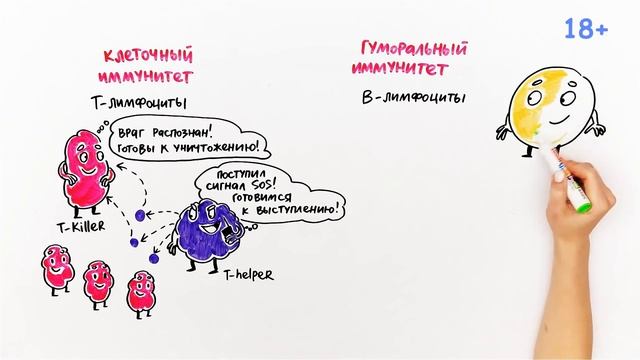 18+
Клеточный
иммунитет
Т-лимфоциты
Враг распознан!
Готовы к уничтожению!
Поступил
сигнал SOS!
Готовимся
к выступлению!
T-killer
T-helper
Гуморальный
иммунитет
В-лимфоциты